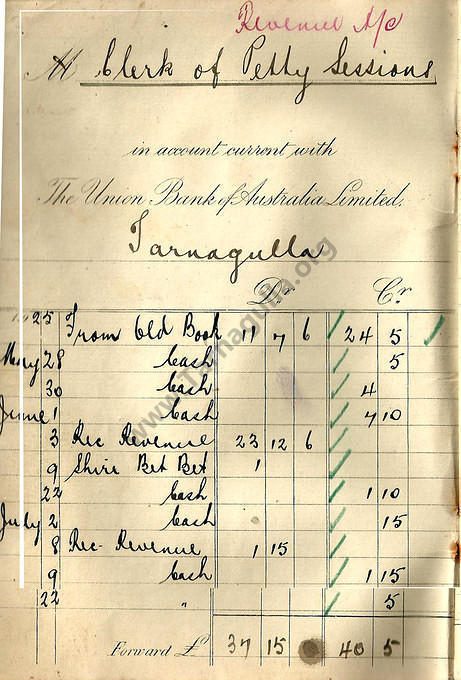 Revenue A/c
M Clerk of Petty Sessions
in account current with
The Union Bank of Australia Limited.
Tarnagulla
Dr Cr
25 From Old Book 11 7 6 ✓ 24 5 ✓
May 28 Cash ✓ 5
30 Cash ✓ 4
June 1 Cash ✓ 7 10
3 Rec Revenue 23 12 6 ✓
9 Shire Bet Bet 1 ✓
22 Cash ✓ 1 10
July 2 Cash ✓ 15
8 Rec- Revenue 1 15 ✓
9 Cash ✓ 1 15
22 " ✓ 5
Forward £ 37 15 40 5
www.Tarnagulla.org